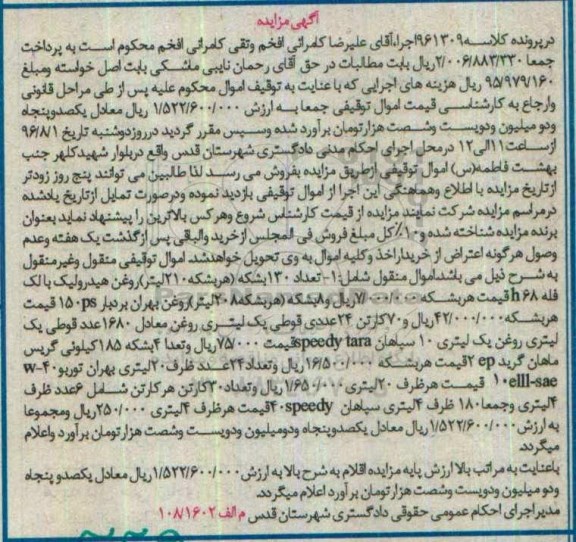 آگهی مزایده
درپرونده کلاسه ۹۶۱۳۰۹اجرا،آقای علیرضا کامرانی افخم وتقی کامرانی افخم محکوم است به پرداخت
جمعا ۲/۰۰۶/۸۸۳/۳۳۰ریال بابت مطالبات در حق آقای رحمان نایبی ماشکی بابت اصل خواسته ومبلغ
۹۵/۹۷۹/۱۶۰ ریال هزینه های اجرایی که با عنایت به توقیف اموال محکوم علیه پس از طی مراحل قانونی
وارجاع به کارشناسی قیمت اموال توقیفی جمعا به ارزش ۱/۵۲۲/۶۰۰/۰۰۰ ریال معادل یکصدوپنجاه
ودو میلیون ودویست وشصت هزارتومان برآورد شده وسپس مقرر گردید درروزدوشنبه تاریخ ۹۶/۸/۱
ازساعت۱۱الی۱۲ درمحل اجرای احکام مدنی دادگستری شهرستان قدس واقع دربلوار شهیدکلهر جنب
بهشت فاطمه(س) اموال توقیفی ازطریق مزایده بفروش می رسد لذا طالبین می توانند پنج روز زودتر
ازتاریخ مزایده با اطلاع وهماهنگی این اجرا از اموال توقیفی بازدید نموده ودرصورت تمایل ازتاریخ یادشده
درمراسم مزایده شرکت نمایند مزایده از قیمت کارشناس شروع وهرکس بالاترین را پیشنهاد نماید بعنوان
برنده مزایده شناخته شده و۱۰٪کل مبلغ فروش فی المجلس ازخرید والباقی پس ازگذشت یک هفته وعدم
وصول هرگونه اعتراض از خریداراخذ وکلیه اموال به وی تحویل خواهدشد. اموال توقیفی منقول وغیرمنقول
به شرح ذیل می باشد:اموال منقول شامل:۱-تعداد ۱۳۰بشکه (هربشکه۲۱۰لیتر)روغن هیدرولیک بالک
فله h ۶۸ قیمت هربشکه ریال و۸بشکه (هربشکه۲۰۸لیتر)روغن بهران بردبار ۱۵۰ps قیمت
هربشکه۴۲/۰۰۰/۰۰۰ریال و۷۰کارتن ۲۴عددی قوطی یک لیتری روغن معادل ۱۶۸۰عدد قوطی یک
لیتری روغن یک لیتری ۱۰ سپاهان speedy taraقیمت ۷۵/۰۰۰ریال وتعدا ۴بشکه ۱۸۵کیلوئی گریس
ماهان گرید ep ۲قیمت هربشکه ۱۶/۵۰۰/۰۰۰ریال وتعداد۲۴عدد ظرف۲۰لیتری بهران توربو۴۰-w
۱۰elll-sae قیمت هرظرف ۲۰لیتری ۱/۶۵۰/۰۰۰ریال وتعداد۳۰کارتن هرکارتن شامل ۶عدد ظرف
۴لیتری وجمعا۱۸۰ ظرف ۴لیتری سپاهان ۴۰speedyقیمت هرظرف ۴لیتری ۲۵۰/۰۰۰ریال ومجموعا
به ارزش۱/۵۲۲/۶۰۰/۰۰۰ ریال معادل یکصدوپنجاه ودومیلیون ودویست وشصت هزارتومان برآورد واعلام
میگردد.
باعنایت به مراتب بالا ارزش پایه مزایده اقلام به شرح بالا به ارزش ۱/۵۲۲/۶۰۰/۰۰۰ریال معادل یکصدو پنجاه
ودو میلیون ودویست وشصت هزارتومان برآورد اعلام میگردد.
مدیر اجرای احکام عمومی حقوقی دادگستری شهرستان قدس م الف ۱۰۸/۱۶۰۲